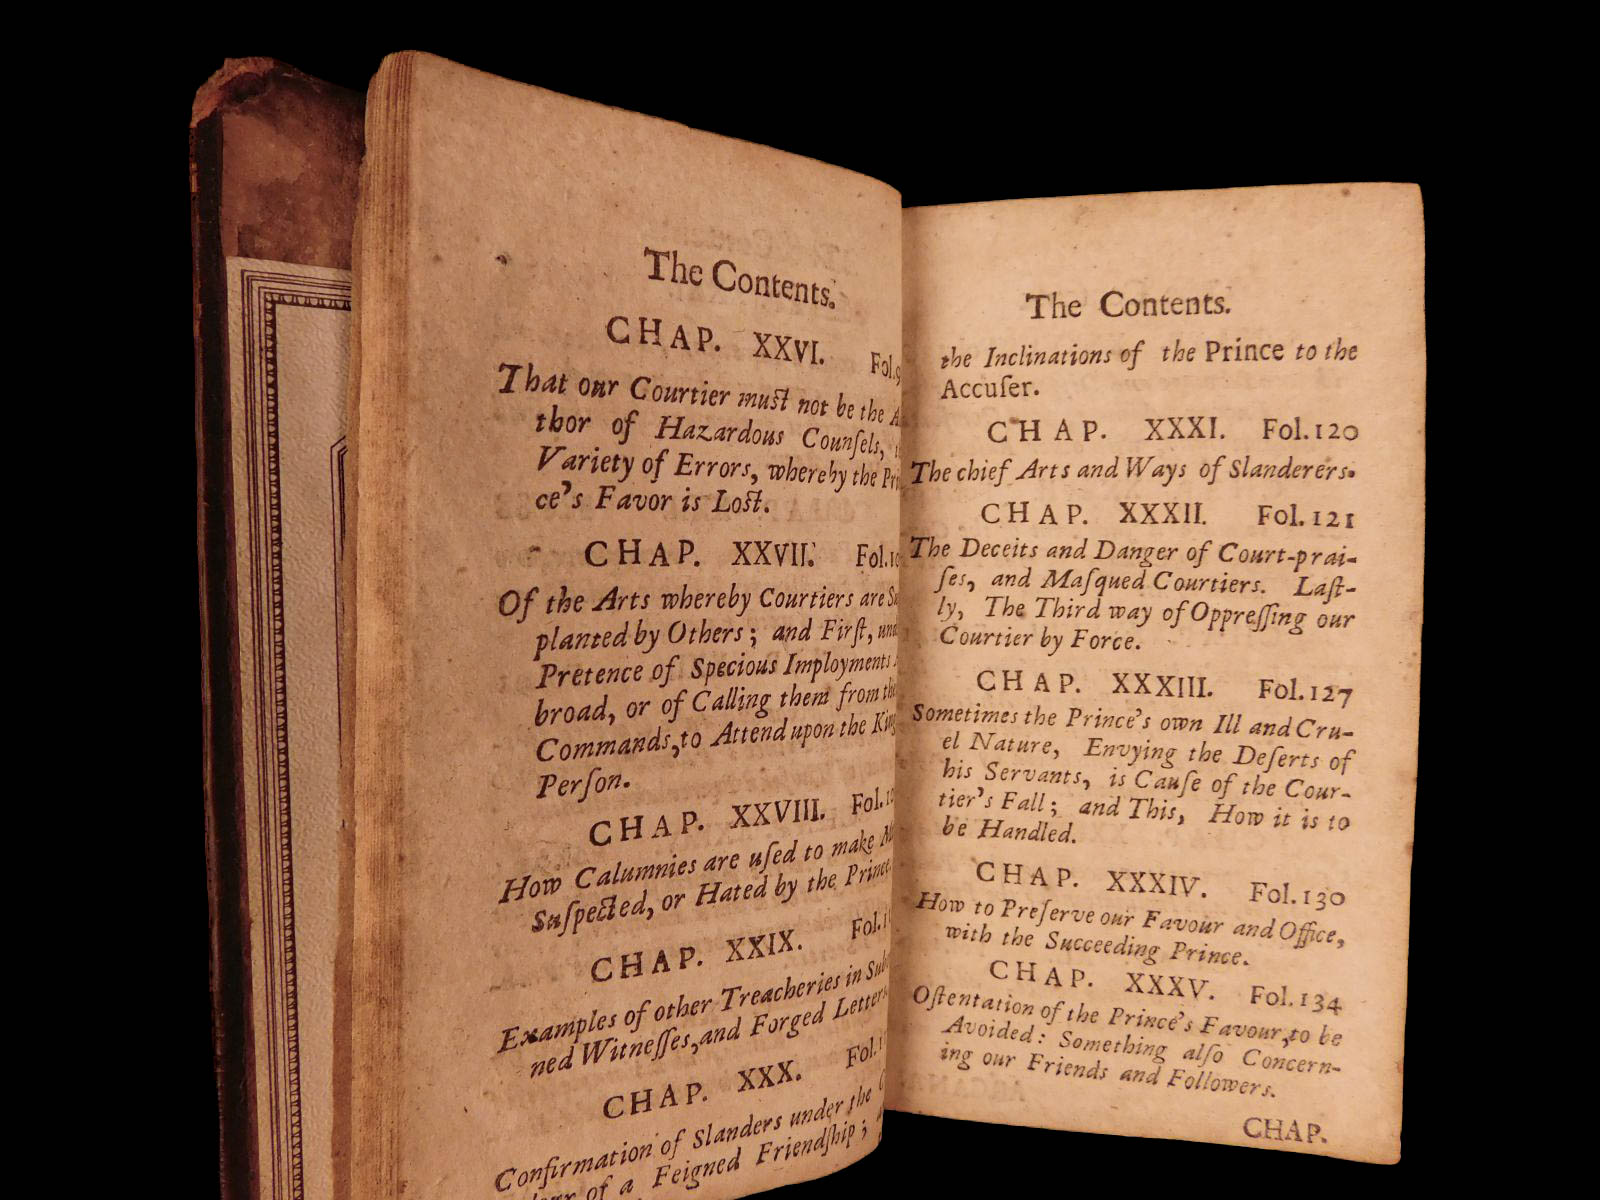 The Contents.
CHAP. XXVI. Fol.9
That our Courtier muſt not be the
thor of Hazardous Counſels,
Variety of Errors, whereby the
ce's Favor is Loſt.
CHAP. XXVII. Fol.
Of the Arts whereby Courtiers are
planted by Others; and Firſt,
Pretence of Specious Imployments
broad, or of Calling them from
Commands, to Attend upon the
Perſon.
CHAP. XXVIII. Fol.
How Calumnies are uſed to make
Suſpected, or Hated by the Prince.
CHAP. XXIX. Fol.
Examples of other Treacheries in
ned Witneſſes, and Forged Letters
CHAP. XXX. Fol.
Confirmation of Slanders under the
of a Feigned Friendſhip;
The Contents.
the Inclinations of the Prince to the
Accuſer.
CHAP. XXXI. Fol.120
The chief Arts and Ways of Slanderers.
CHAP. XXXII. Fol.121
The Deceits and Danger of Court-prai-
ſes, and Maſqued Courtiers. Laſt-
ly, The Third way of Oppreſſing our
Courtier by Force.
CHAP. XXXIII. Fol.127
Sometimes the Prince's own Ill and Cru-
el Nature, Envying the Deſerts of
his Servants, is Cauſe of the Cour-
tier's Fall; and This, How it is to
be Handled.
CHAP. XXXIV. Fol.130
How to Preſerve our Favour and Office,
with the Succeeding Prince.
CHAP. XXXV. Fol.134
Oſtentation of the Prince's Favour, to be
Avoided: Something alſo Concern-
ing our Friends and Followers.
CHAP.